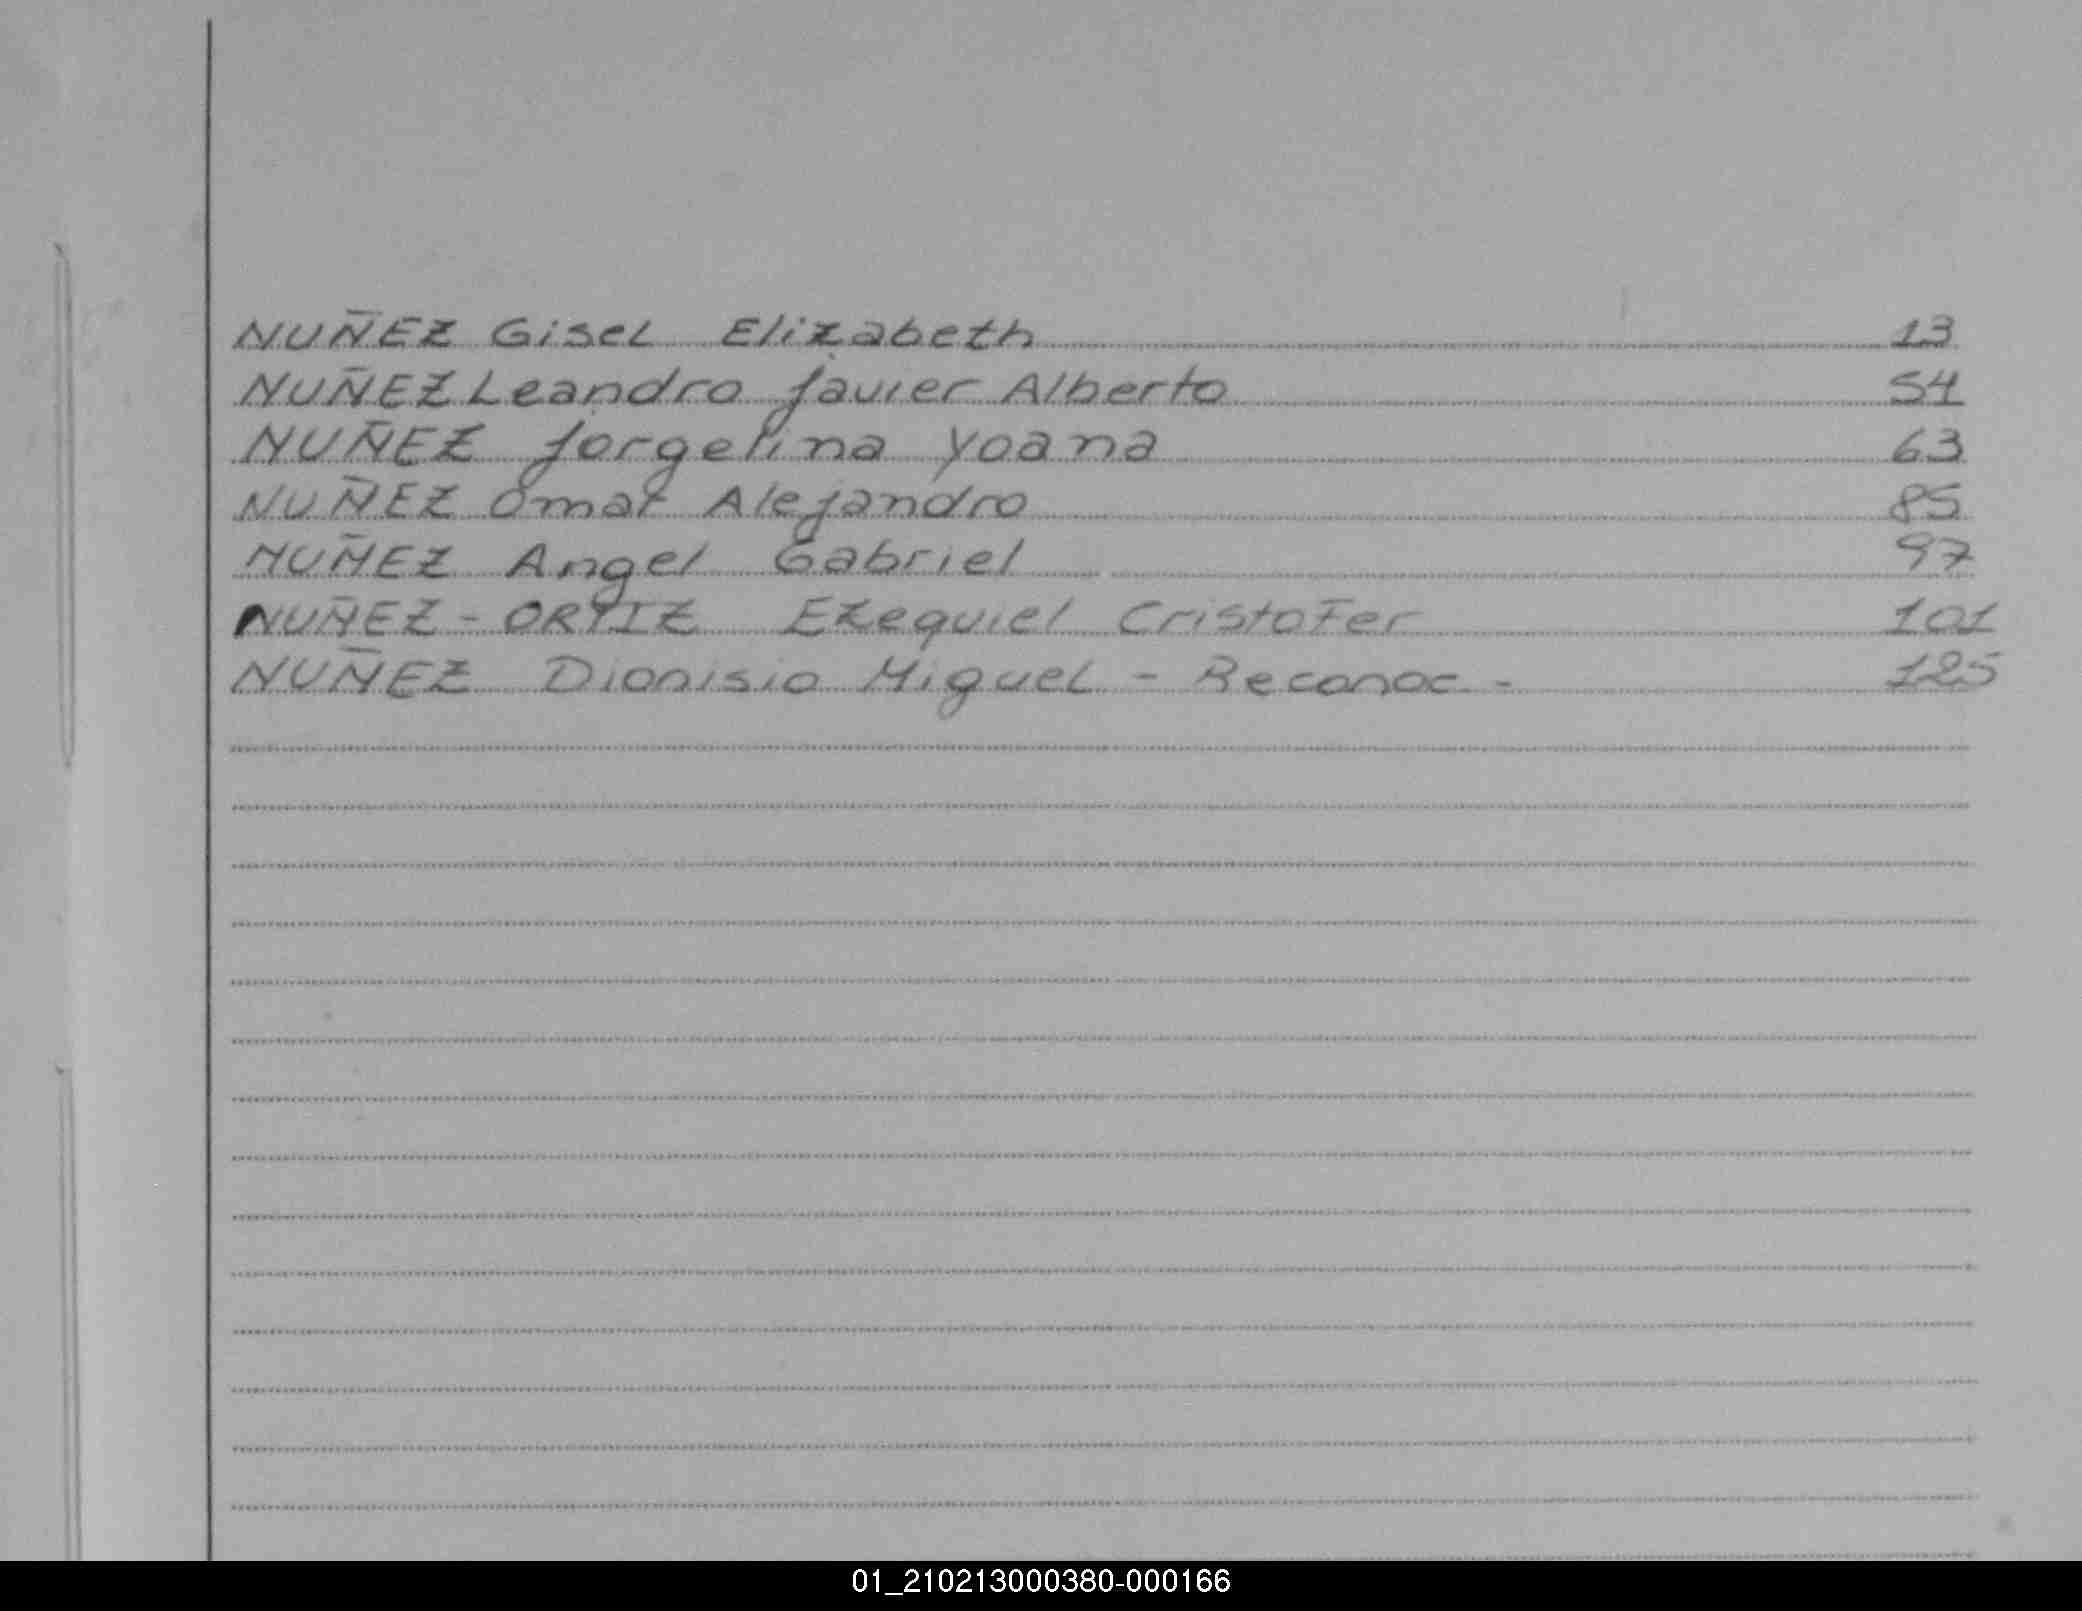 NUÑEZ Gisel Elizabeth 13
NUÑEZ Leandro Javier Alberto 54
NUÑEZ Jorgelina Yoana 63
NUÑEZ Omar Alejandro 85
NUÑEZ Angel Gabriel 97
NUÑEZ - ORTIZ Ezequiel Cristofer 101
NUÑEZ Dionisio Miguel - Reconoc. - 125
01_210213000380-000166